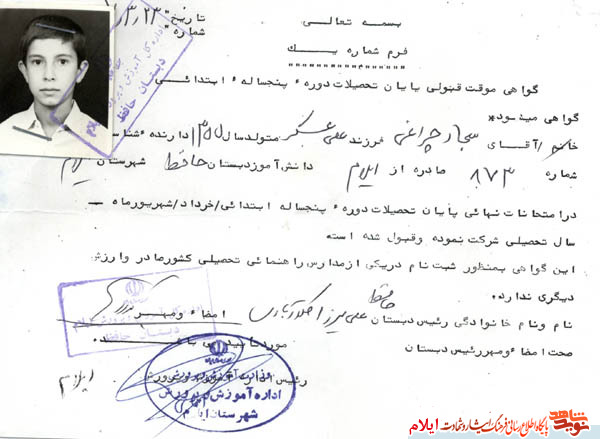 بسمه تعالی
تاریخ ۱۳/۳/۲۳
شماره
فرم شماره یک
گواهی موقت قبولی پایان تحصیلات دوره پنجساله ابتدائی
گواهی میشود
خانم/آقای سجاد چراغی فرزند علی عسگر متولد سال ۱۳۵۰ دارنده شناسنامه
شماره ۸۷۳ صادره از ایلام دانش‌آموز دبستان حافظ شهرستان ایلام
در امتحانات نهائی پایان تحصیلات دوره پنجساله ابتدائی/خرداد/شهریورماه
سال تحصیلی شرکت نموده و قبول شده است
این گواهی بمنظور ثبت نام در یکی از مدارس راهنمائی تحصیلی کشور صادر و ارزش
دیگری ندارد.
حافظ
نام و نام خانوادگی رئیس دبستان علی میرزا امضاء و مهر
صحت امضاء و مهر رئیس دبستان مورد تایید می باشد
رئیس اداره آموزش و پرورش ایلام
اداره کل آموزش و پرورش ایلام
دبستان حافظ
دبستان حافظ
وزارت آموزش و پرورش
اداره آموزش و پرورش
شهرستان ایلام
نوید شاهد
پایگاه اطلاع رسانی فرهنگ ایثار و شهادت ایلام